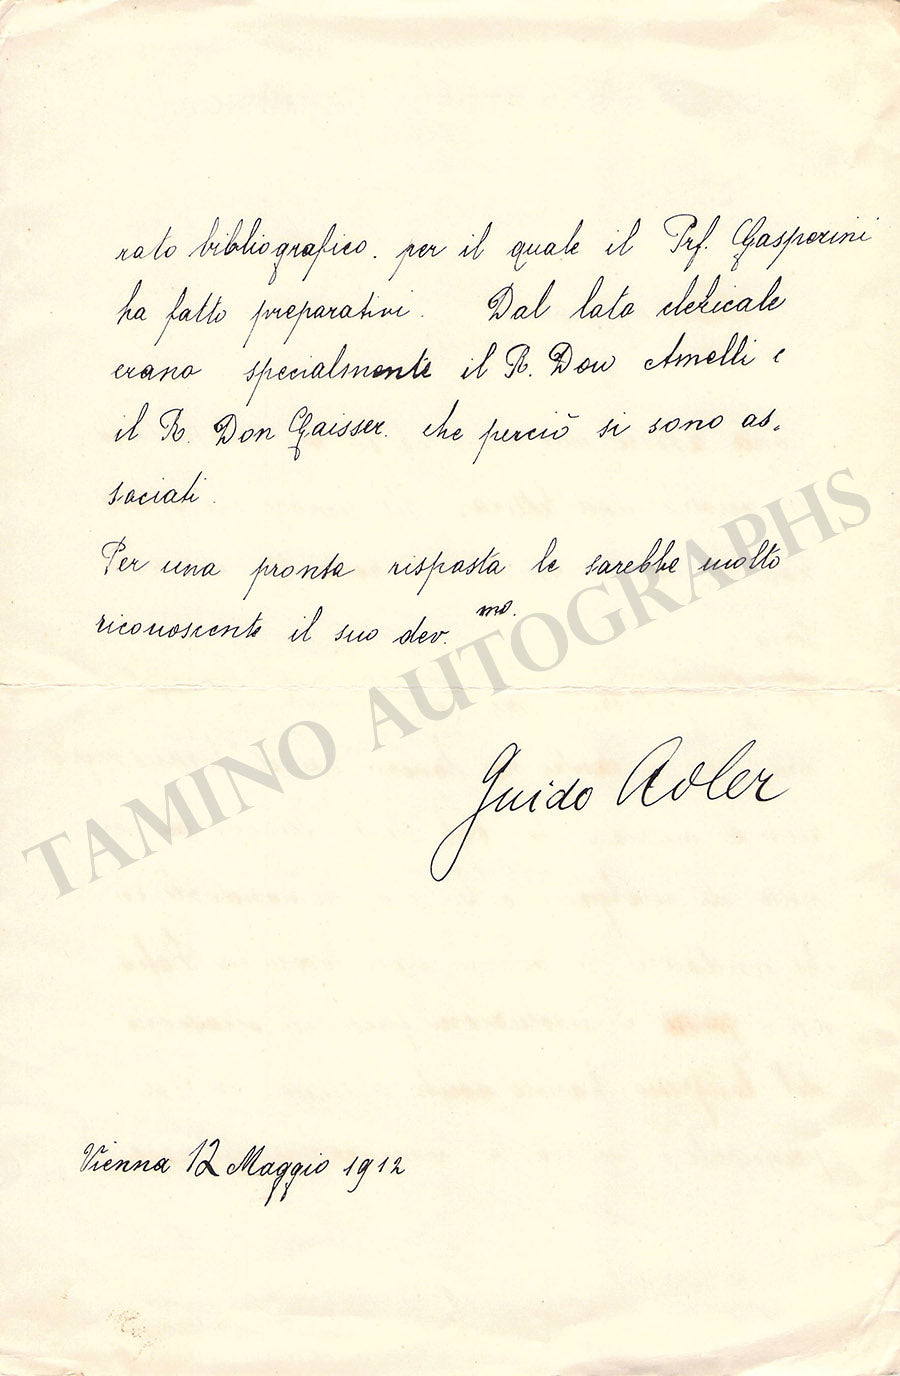 rato bibliografico. per il quale il Prf. Gasperini
ha fatto preparativi. Dal lato clericale
erano specialmente il R. Don Amelli e
il R. Don Gaisser. che perciò si sono as,
sociati.
Per una pronta risposta le sarebbe molto
riconoscente il suo dev. mo.
Guido Adler
Vienna 12 Maggio 1912
TAMINO AUTOGRAPHS